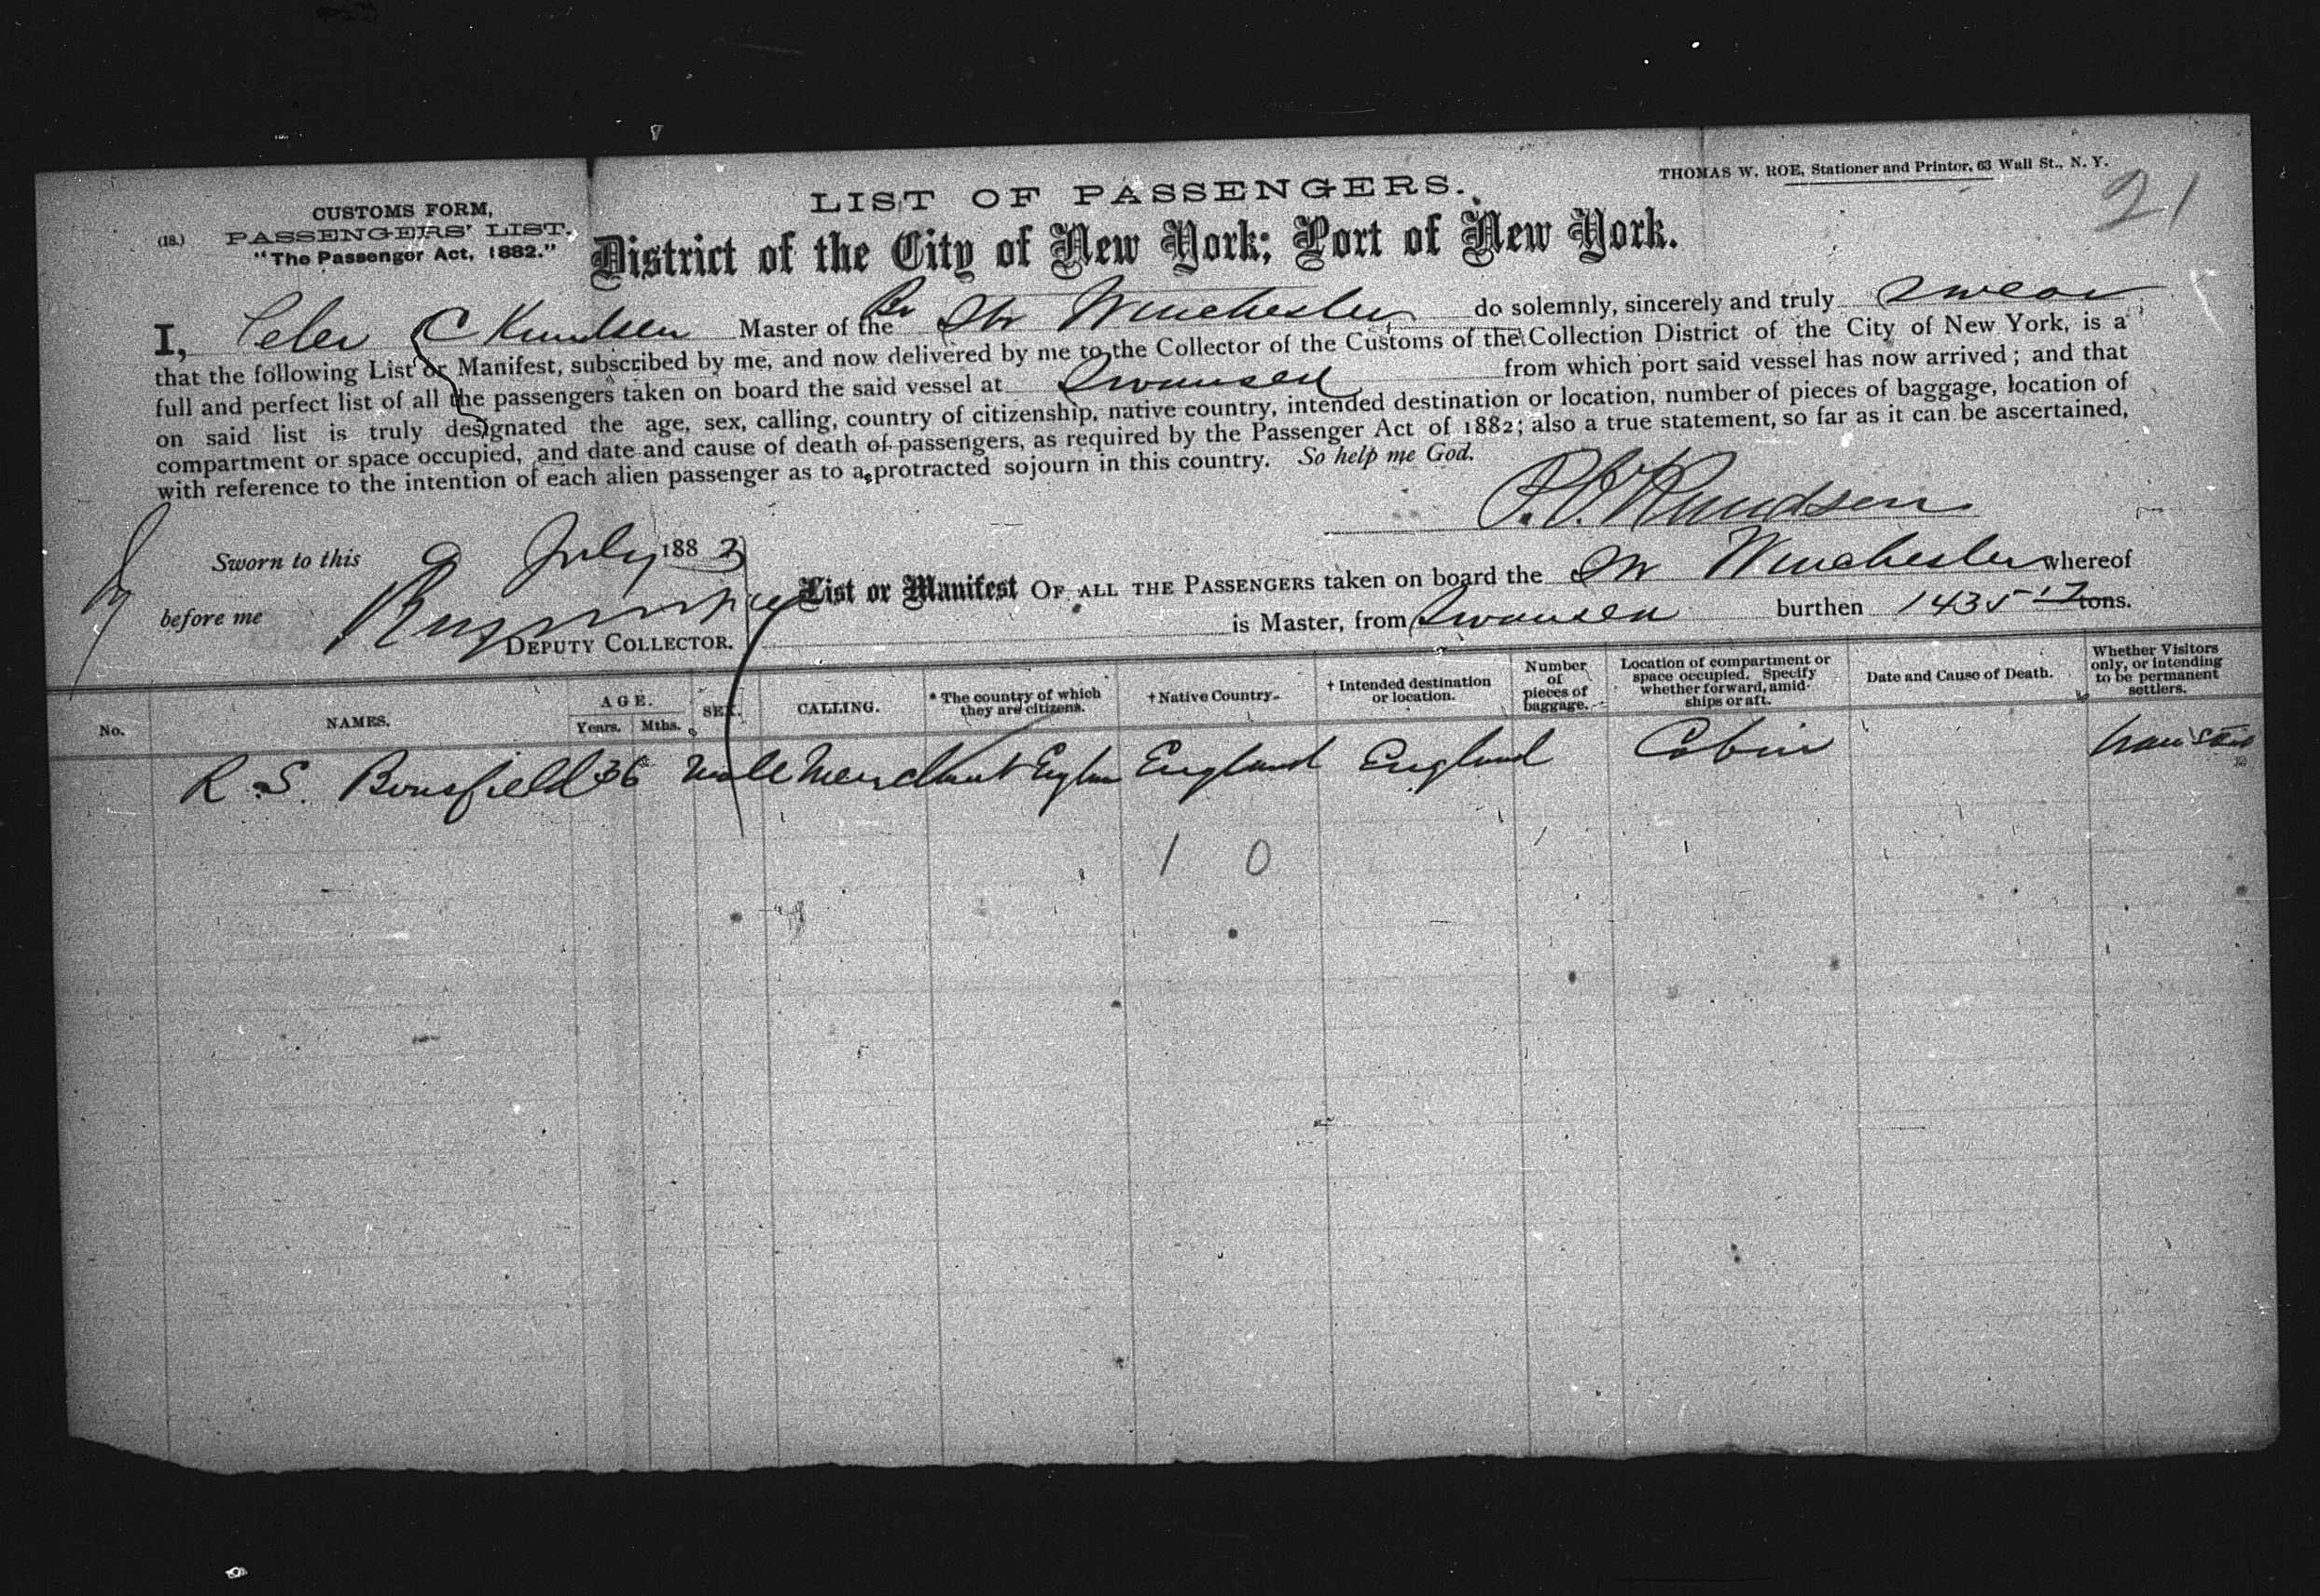 THOMAS W. ROE, Stationer and Printer, 63 Wall St., N. Y.
21
LIST OF PASSENGERS.
CUSTOMS FORM,
(18.) PASSENGERS' LIST.
"The Passenger Act, 1882."
District of the City of New York; Port of New York.
I, Peter C Knudsen Master of the Br Str Winchester do solemnly, sincerely and truly swear
that the following List or Manifest, subscribed by me, and now delivered by me to the Collector of the Customs of the Collection District of the City of New York, is a
full and perfect list of all the passengers taken on board the said vessel at Swansea from which port said vessel has now arrived; and that
on said list is truly designated the age, sex, calling, country of citizenship, native country, intended destination or location, number of pieces of baggage, location of
compartment or space occupied, and date and cause of death of passengers, as required by the Passenger Act of 1882; also a true statement, so far as it can be ascertained,
with reference to the intention of each alien passenger as to a protracted sojourn in this country. So help me God.
P. C. Knudsen
Sworn to this 9 July 1883
before me
DEPUTY COLLECTOR.
List or Manifest OF ALL THE PASSENGERS taken on board the Str Winchester whereof
is Master, from Swansea burthen 1435 17 tons.
No.
NAMES.
AGE.
Years. Mths.
SEX.
CALLING.
* The country of which
they are citizens.
† Native Country.
† Intended destination
or location.
Number
of
pieces of
baggage.
Location of compartment or
space occupied. Specify
whether forward, amid-
ships or aft.
Date and Cause of Death.
Whether Visitors
only, or intending
to be permanent
settlers.
R. S. Bousfield 36 Male Merchant Englan England England Cabin
1 0